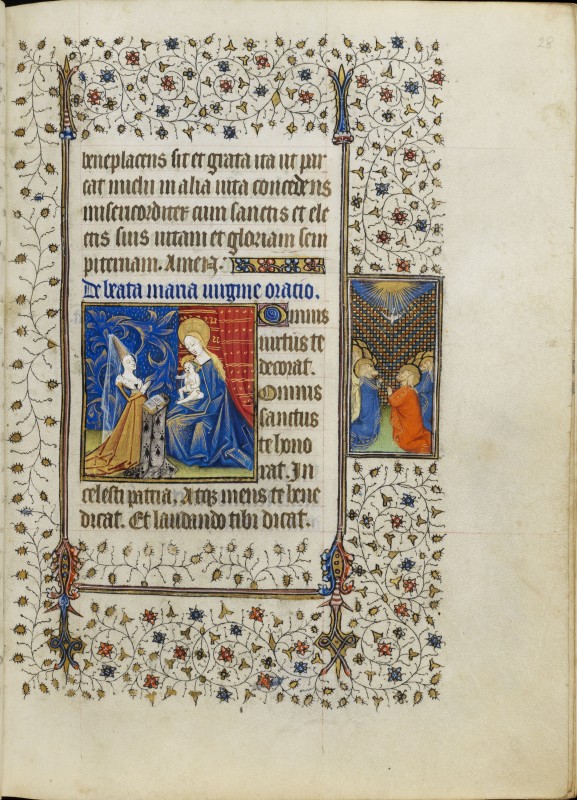 28
beneplacens sit et grata ita ut par
cat michi in alia uita concedens
misericorditer cum sanctis et ele
ctis suis uitam et gloriam sem
piternam. Amen.
De beata maria uirgine oracio.
Omnis
uirtus te
decorat.
Omnis
sanctus
te hono
rat. In
celesti patria, Atqz mens te bene
dicat. Et laudando tibi dicat.